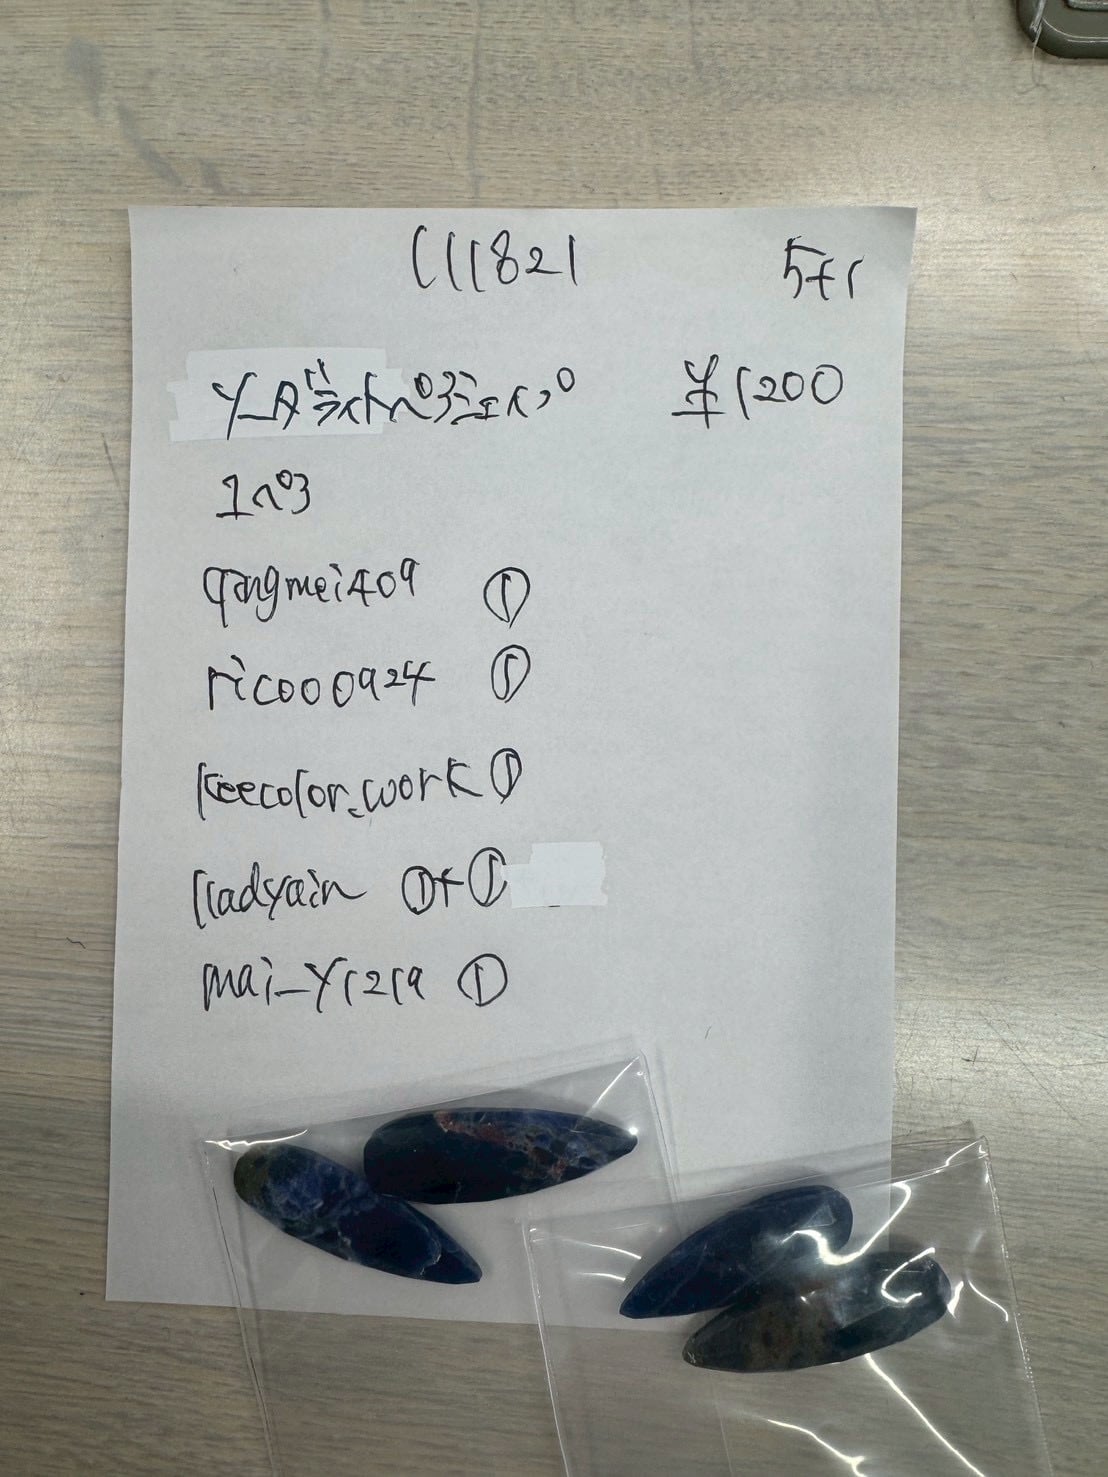 111821 5+1
ソーダライトペアシェイプ ¥1200
1ペア
qingmei409 ①
rico000924 ①
keecolor_work ①
lladyain ①+①
mai_y1219 ①